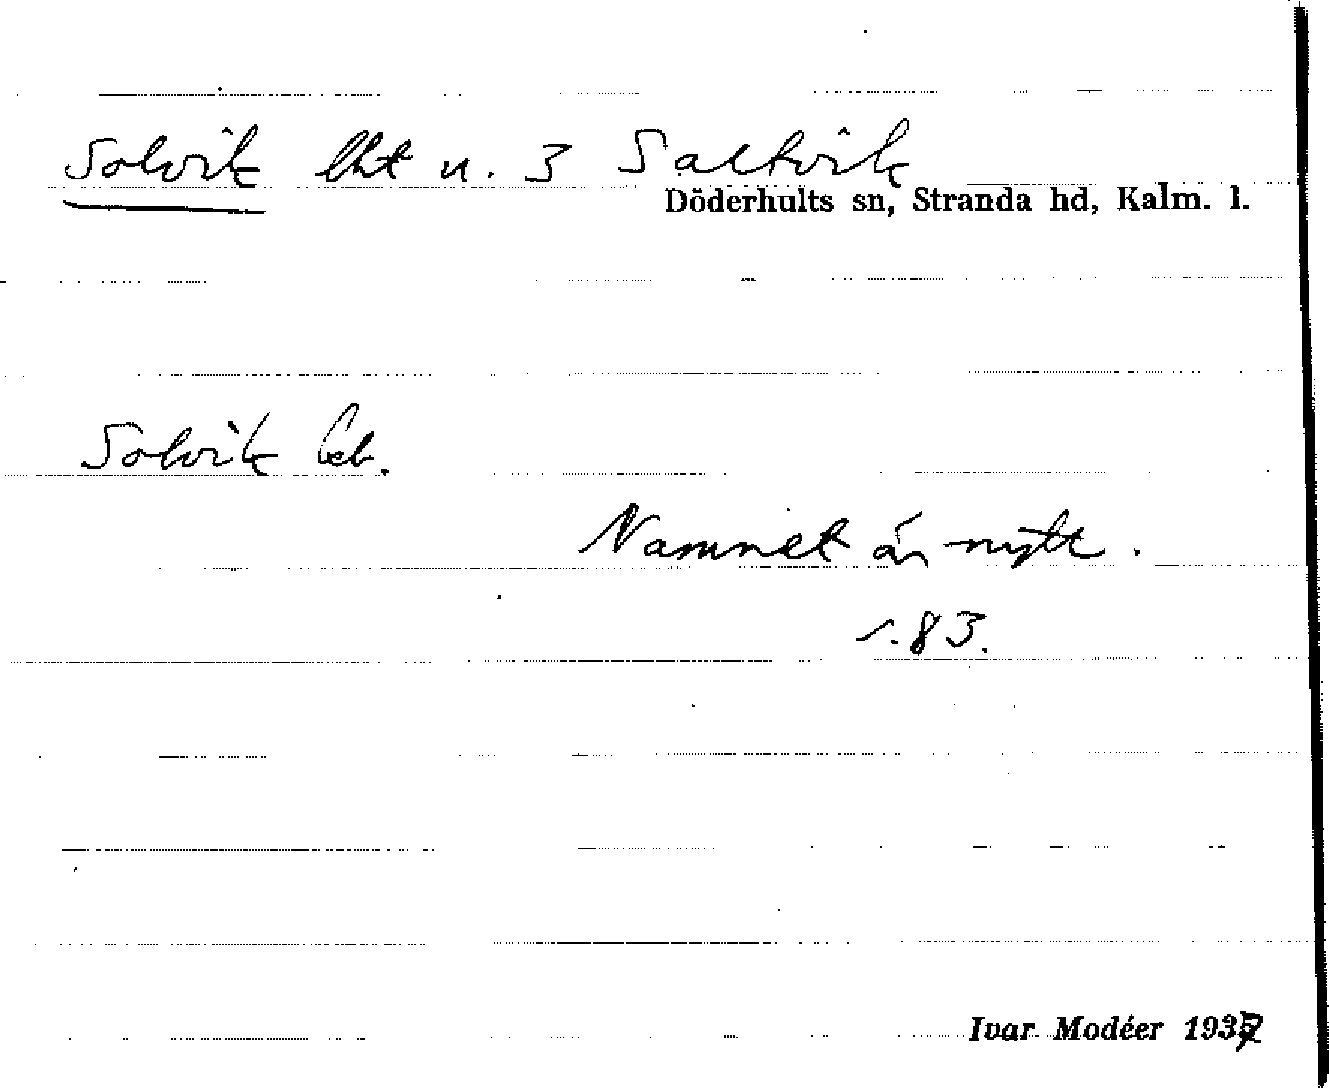 Solvik lht u. 3 Saltvik
Döderhults sn, Stranda hd, Kalm. l.
Solvik
Namnet är nytt.
1.83.
Ivar Modéer 1937